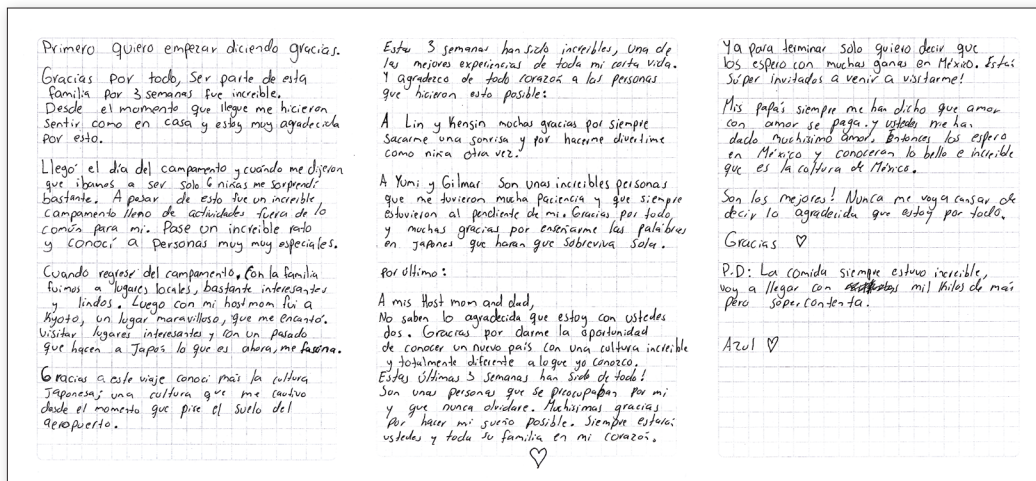 Primero quiero empezar diciendo gracias.
Gracias por todo, Ser parte de esta
familia por 3 semanas fue increible.
Desde el momento que llegue me hicieron
sentir como en casa y estoy muy agradecida
por esto.
Llegó el día del campamento y cuándo me dijeron
que ibamos a ser solo 6 niñas me sorprendí
bastante. A pesar de esto fue un increible
campamento lleno de actividades fuera de lo
común para mi. Pase un increible rato
y conocí a personas muy muy especiales.
Cuando regrese del campamento, con la familia
fuimos a lugares locales, bastante interesantes
y lindos. Luego con mi hostmom fui a
Kyoto, un lugar maravilloso, que me encantó.
Visitar lugares interesantes y con un pasado
que hacen a Japon lo que es ahora, me fascina.
Gracias a este viaje conocí más la cultura
Japonesa; una cultura que me cautivo
desde el momento que pise el suelo del
aeropuerto.
Estas 3 semanas han sido increibles, una de
las mejores experiencias de toda mi corta vida.
Y agradezco de todo corazon a las personas
que hicieron esto posible:
A Lin y Kensin muchas gracias por siempre
sacarme una sonrisa y por hacerme divertirme
como niña otra vez.
A Yumi y Gilmar Son unas increibles personas
que me tuvieron mucha paciencia y que siempre
estuvieron al pendiente de mi. Gracias por todo
y muchas gracias por enseñarme las palabras
en japones que haran que sobreviva sola.
por último:
A mis Host mom and dad,
No saben lo agradecida que estoy con ustedes
dos. Gracias por darme la oportunidad
de conocer un nuevo país con una cultura increible
y totalmente diferente a lo que yo conozco.
Estas últimas 3 semanas han sido de todo!
Son unas personas que se preocupaban por mi
y que nunca olvidare. Muchisimas gracias
por hacer mi sueño posible. Siempre estarán
ustedes y toda su familia en mi corazon.
Ya para terminar solo quiero decir que
los espero con muchas ganas en México. Están
súper invitados a venir a visitarme!
Mis papás siempre me han dicho que amor
con amor se paga. y ustedes me han
dado muchisimo amor. Entonces los espero
en México y conoceran lo bello e increible
que es la cultura de México.
Son los mejores! Nunca me voy a cansar de
decir lo agradecida que estoy por todo.
Gracias ♡
P.D: La comida siempre estuvo increible,
voy a llegar con mil kilos de más
pero súper contenta.
Azul ♡